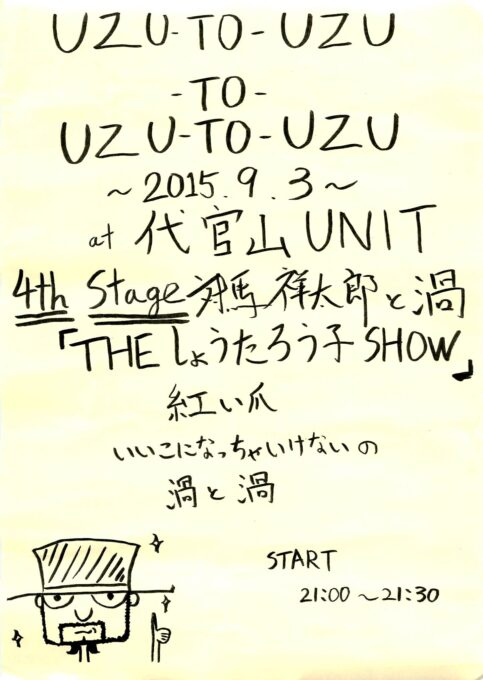 UZU-TO-UZU
-TO-
UZU-TO-UZU
～2015.9.3～
at 代官山UNIT
4th Stage 対馬祥太郎と渦
「THEしょうたろう子SHOW」
紅い爪
いいこになっちゃいけないの
渦と渦
START
21:00～21:30